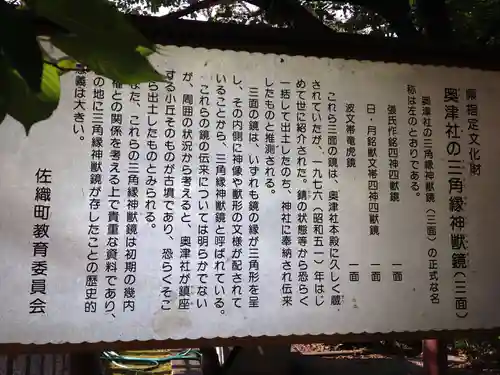 県指定文化財
奥津社の三角縁神獣鏡（三面）
奥津社の三角縁神獣鏡（三面）の正式な名
称は左のとおりである。
張氏作銘四神四獣鏡　一面
日・月銘獣文帯四神四獣鏡　一面
波文帯竜虎鏡　一面
これら三面の鏡は、奥津社本殿に久しく蔵
されていたが、一九七六（昭和五一）年はじ
めて世に紹介された。錆の状態等から恐らく
一括して出土したのち、神社に奉納され伝来
したものと推測される。
三面の鏡は、いずれも鏡の縁が三角形を呈
し、その内側に神像や獣形の文様が配されて
いることから、三角縁神獣鏡と呼ばれている。
これらの鏡の伝来については明らかでない
が、周囲の状況から考えると、奥津社が鎮座
する小丘そのものが古墳であり、恐らくそこ
から出土したものとみられる。
また、これらの三角縁神獣鏡は初期の畿内
権との関係を考える上で貴重な資料であり、
の地に三角縁神獣鏡が存したことの歴史的
意義は大きい。
佐織町教育委員会